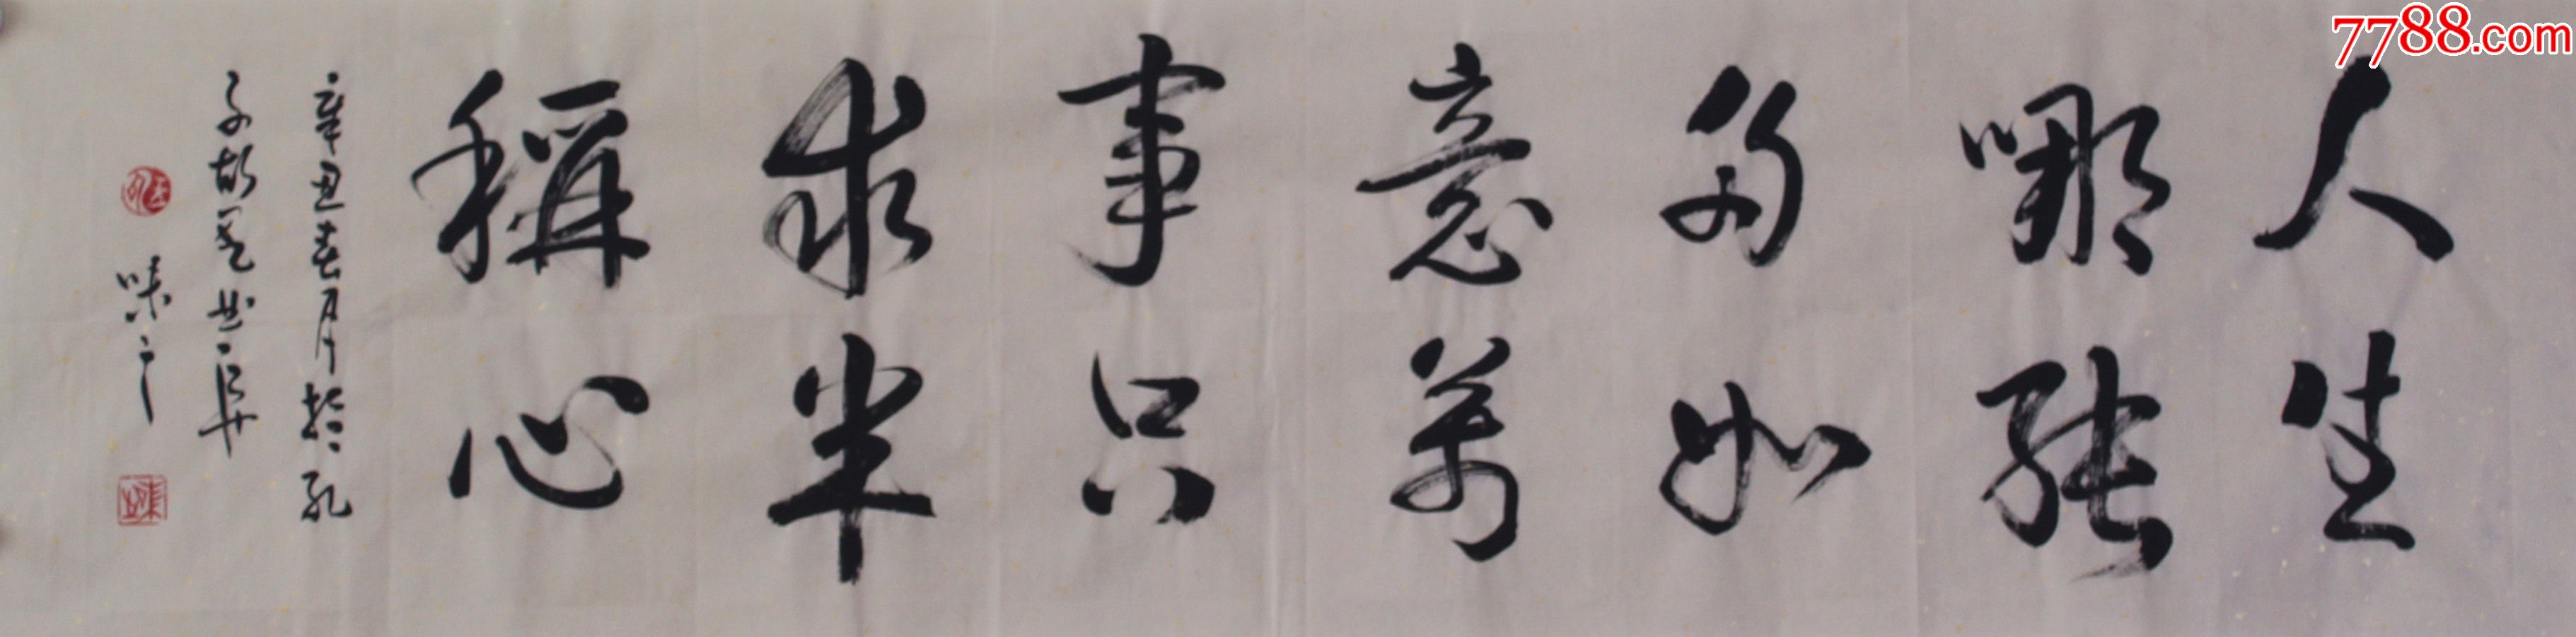 人生
哪能
多如
意萬
事只
求半
稱心
辛丑春月於孔
子故里曲阜
味之
7788.com